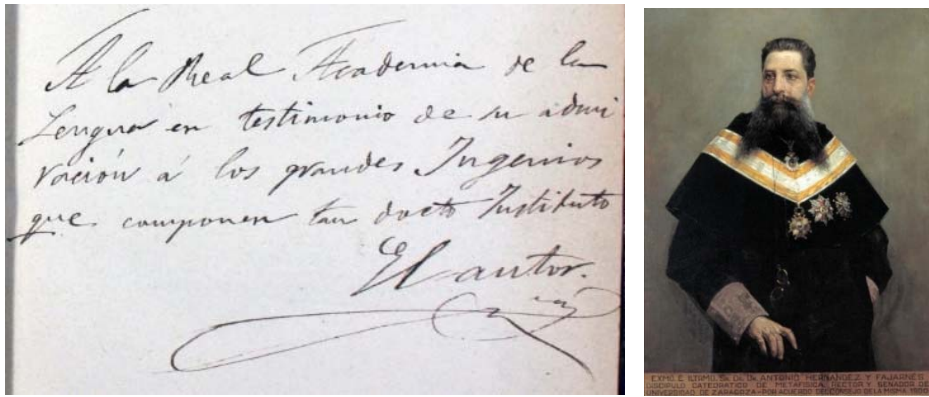 A la Real Academia de la
Lengua en testimonio de su admi
ración á los grandes Ingenios
que componen tan docto Instituto
El autor.
EXMO. E ILTMO. SR. DR. DN. ANTONIO HERNANDEZ Y FAJARNÉS
DISCIPULO CATEDRATICO DE METAFISICA, RECTOR Y SENADOR DE
UNIVERSIDAD DE ZARAGOZA-POR ACUERDO DEL CONSEJO DE LA MISMA,